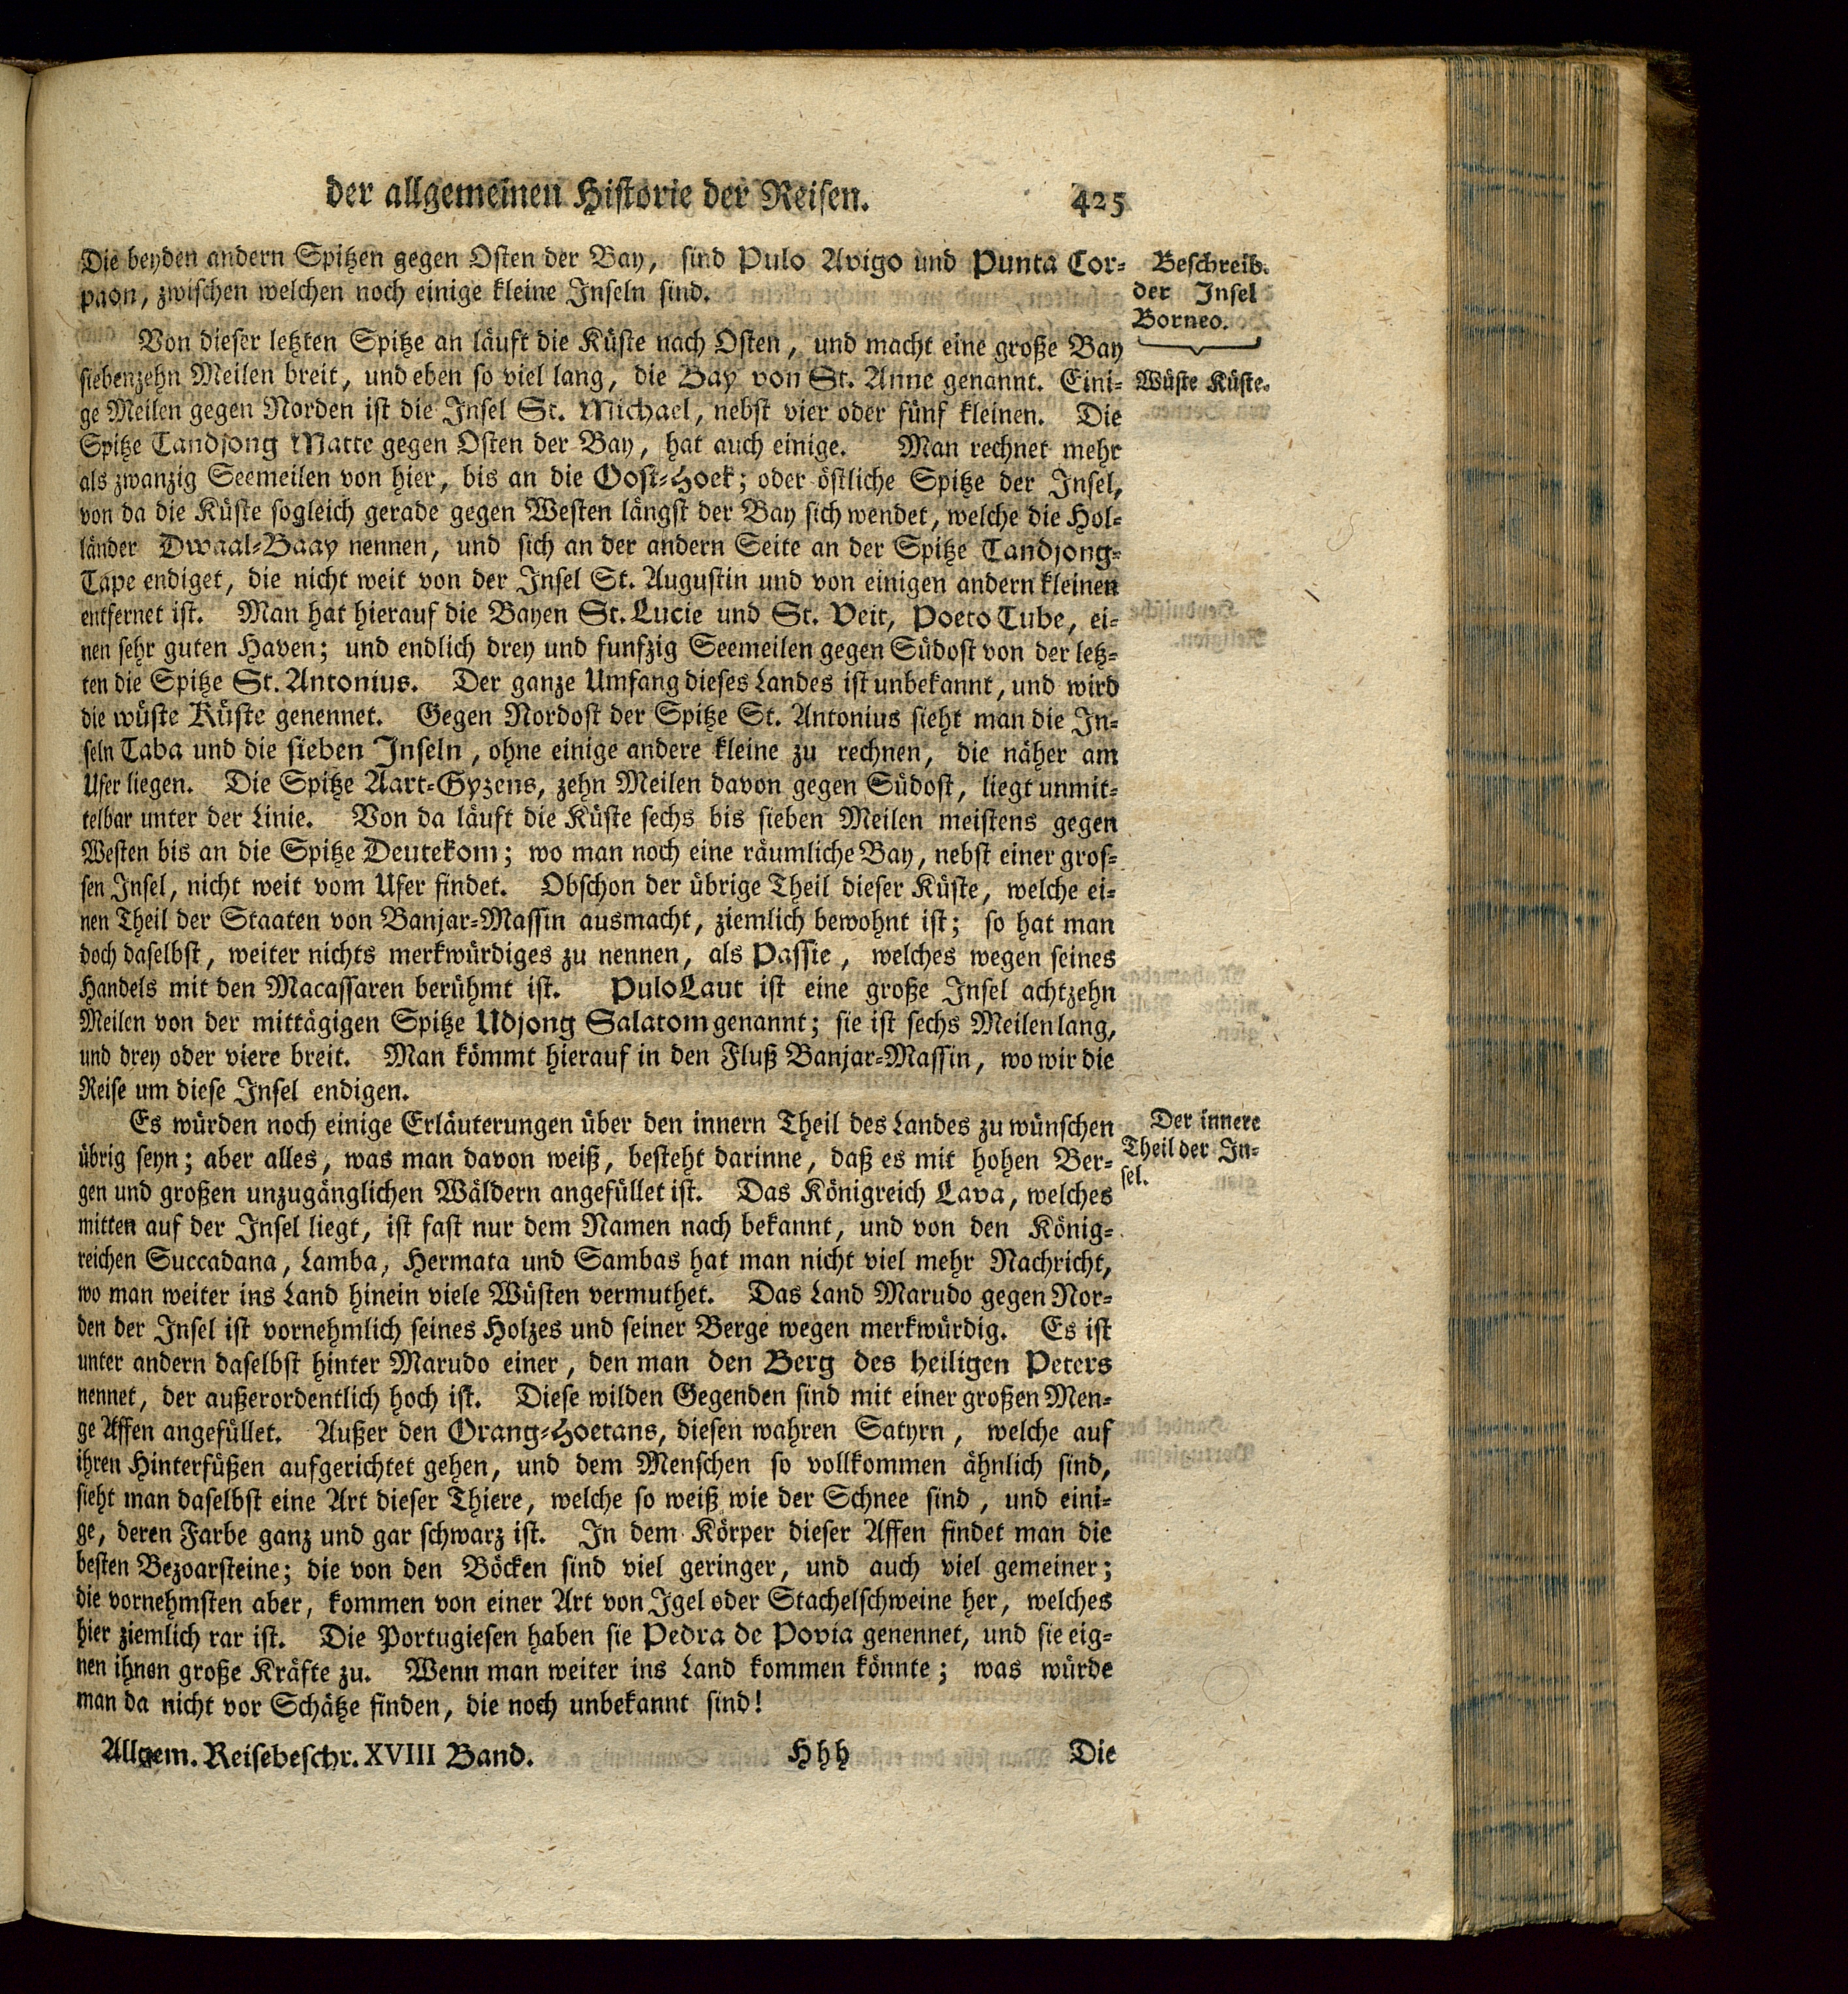 der allgemeinen Historie der Reisen. 425
Die beyden andern Spitzen gegen Osten der Bay, sind Pulo Avigo und Punta Cor-
paon, zwischen welchen noch einige kleine Inseln sind.
Beschreib.
der Insel
Borneo.
Von dieser letzten Spitze an läuft die Küste nach Osten, und macht eine große Bay
siebenzehn Meilen breit, und eben so viel lang, die Bay von St. Anne genannt. Eini-
Wüste Küste.
ge Meilen gegen Norden ist die Insel St. Michael, nebst vier oder fünf kleinen. Die
Spitze Tandjong Matte gegen Osten der Bay, hat auch einige. Man rechnet mehr
als zwanzig Seemeilen von hier, bis an die Oost-Hoek; oder östliche Spitze der Insel,
von da die Küste sogleich gerade gegen Westen längst der Bay sich wendet, welche die Hol-
länder Dwaal-Baay nennen, und sich an der andern Seite an der Spitze Tandjong-
Tape endiget, die nicht weit von der Insel St. Augustin und von einigen andern kleinen
entfernet ist. Man hat hierauf die Bayen St. Lucie und St. Veit, Poeto Tube, ei-
nen sehr guten Haven; und endlich drey und funfzig Seemeilen gegen Südost von der letz-
ten die Spitze St. Antonius. Der ganze Umfang dieses Landes ist unbekannt, und wird
die wüste Küste genennet. Gegen Nordost der Spitze St. Antonius sieht man die In-
seln Taba und die sieben Inseln, ohne einige andere kleine zu rechnen, die näher am
Ufer liegen. Die Spitze Aart-Gyzens, zehn Meilen davon gegen Südost, liegt unmit-
telbar unter der Linie. Von da läuft die Küste sechs bis sieben Meilen meistens gegen
Westen bis an die Spitze Deutekom; wo man noch eine räumliche Bay, nebst einer gros-
sen Insel, nicht weit vom Ufer findet. Obschon der übrige Theil dieser Küste, welche ei-
nen Theil der Staaten von Banjar-Massin ausmacht, ziemlich bewohnt ist; so hat man
doch daselbst, weiter nichts merkwürdiges zu nennen, als Passie, welches wegen seines
Handels mit den Macassaren berühmt ist. Pulo Laut ist eine große Insel achtzehn
Meilen von der mittägigen Spitze Udjong Salatom genannt; sie ist sechs Meilen lang,
und drey oder viere breit. Man kömmt hierauf in den Fluß Banjar-Massin, wo wir die
Reise um diese Insel endigen.
Es würden noch einige Erläuterungen über den innern Theil des Landes zu wünschen
übrig seyn; aber alles, was man davon weiß, besteht darinne, daß es mit hohen Ber-
Der innere
Theil der In-
sel.
gen und großen unzugänglichen Wäldern angefüllet ist. Das Königreich Lava, welches
mitten auf der Insel liegt, ist fast nur dem Namen nach bekannt, und von den König-
reichen Succadana, Lamba, Hermata und Sambas hat man nicht viel mehr Nachricht,
wo man weiter ins Land hinein viele Wüsten vermuthet. Das Land Marudo gegen Nor-
den der Insel ist vornehmlich seines Holzes und seiner Berge wegen merkwürdig. Es ist
unter andern daselbst hinter Marudo einer, den man den Berg des heiligen Peters
nennet, der außerordentlich hoch ist. Diese wilden Gegenden sind mit einer großen Men-
ge Affen angefüllet. Außer den Orang-Hoetans, diesen wahren Satyrn, welche auf
ihren Hinterfüßen aufgerichtet gehen, und dem Menschen so vollkommen ähnlich sind,
sieht man daselbst eine Art dieser Thiere, welche so weiß wie der Schnee sind, und eini-
ge, deren Farbe ganz und gar schwarz ist. In dem Körper dieser Affen findet man die
besten Bezoarsteine; die von den Böcken sind viel geringer, und auch viel gemeiner;
die vornehmsten aber, kommen von einer Art von Igel oder Stachelschweine her, welches
hier ziemlich rar ist. Die Portugiesen haben sie Pedra de Povia genennet, und sie eig-
nen ihnen große Kräfte zu. Wenn man weiter ins Land kommen könnte; was würde
man da nicht vor Schätze finden, die noch unbekannt sind!
Allgem. Reisebeschr. XVIII Band. Hhh Die